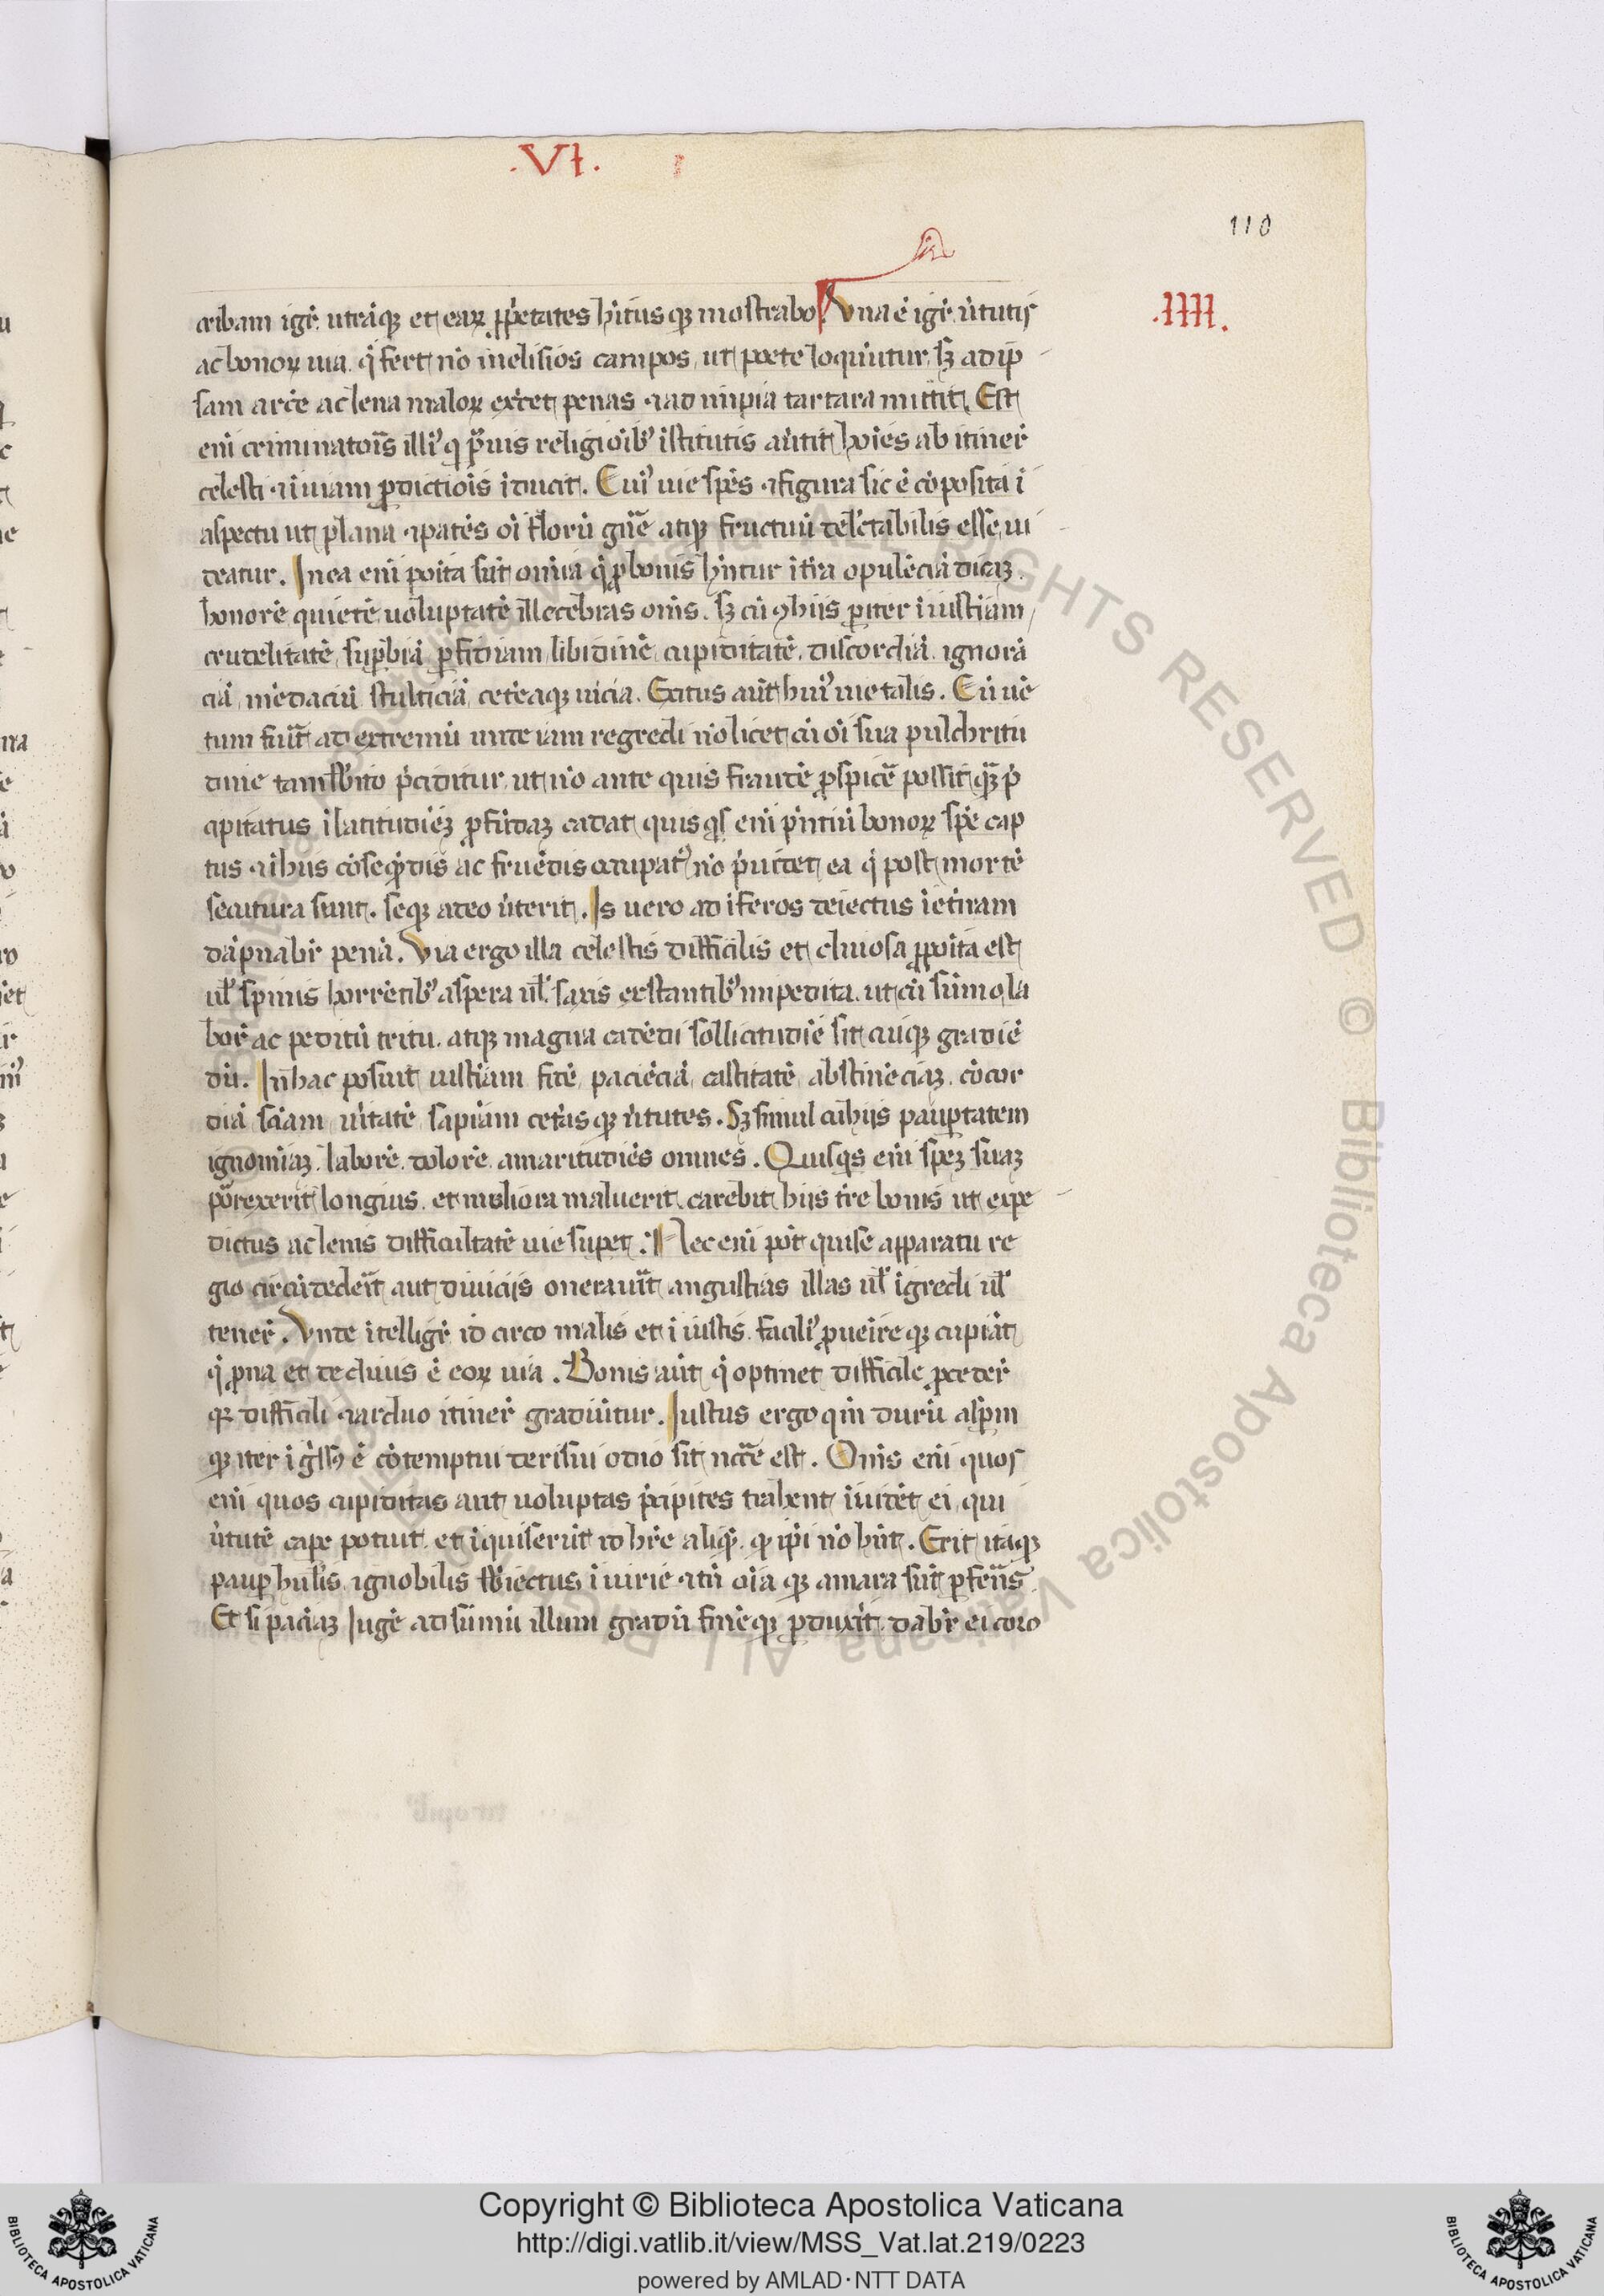 .VI.
110
.IIII.
cribam igr̃ utrāqꝫ et earꝝ ꝓp̃etates hītus qꝫ mostrabo Una ē igr̃ v̓tutis
ac bonorꝝ uia q̃ fert nō ī nelisios campos, ut poete loquūtur, sꝫ ad ip
sam arcē ac lena malorꝝ penas ⁊ ad impia tartara mittit. Est
eni criminatoris illi᷒ q p̃uis religiōibꝫ īstitutis av̓tit hoīes ab itiner̃
celesti ⁊ ī uiam ꝑdictiōis īducit. Cui᷒ uie sp̄es ⁊ figura sic ē cōposita ī
aspectu ut plana ⁊ patēs oī florū gn̄e atqꝫ fructuū delectabilis esse ui
deatur. In ea eni poīta sūt omnia q̃ ꝓ bonis hn̄tur ī tr̃a opulēciā dicaꝫ
honorē quietē uoluptatē illecebras om̄s. sꝫ cū hiis pariter iniustiam
crudelitatē suꝑbiā ꝑfidiam libidinē cupiditatē discordiā ignorā
ciā mēdaciū stulticiā ceteaqꝫ uicia. Exitus aūt hui᷒ uie talis. Cū uē
tum fūit ad extremū unde iam regredi nō licet cū oī sua pulchritu
dine tam subito p̃ciditur ut nō ante quis fraudē ꝓspicē possit q̃ p̃
cipitatus ī latitudīeꝫ ꝓfūdaꝫ cadat quisqs eni p̃ntiū bonorꝝ spē cap
tus ⁊ ī hiis cōseqndis ac fruēdis occupat᷒ nō p̃uidet ea q̃ post mortē
secutura sunt. seqꝫ a deo v̓terit. Is uero ad īferos deiectus ī et̓nam
dāpnabr̃ penā. Via ergo illa celestis difficilis et cliuosa ꝓpoīta est
ul̃ spinis horrētibꝫ aspera ul̃ saxis exstantibꝫ impedita. ut cū sūmo la
borē ac peditū tritu. atqꝫ magna cadēdi sollicitudīē sit cuiqꝫ gradiē
dū. In hac posuit iustiam fidē paciēciā castitatē abstinēciaꝫ cōcor
diā sciam v̓itatē sapiam cet̓as qꝫ v̓tutes. Sꝫ simul cū hiis pauꝑtatem
ignomīaꝫ laborē dolorē amaritudīes omnes. Quisqs eni speꝫ suaꝫ
porrexerit longius et meliora maluerit carebit hiis tr̃e bonis ut expe
ditus ac leuis difficultatē uie suꝑet. Nec eni pōt qui se apparatu re
gio circūdederit aut diuiciis onerauit angustias illas ul̃ īgredi ul̃
tener̃. Unde ītelligr̃ id circo malis et ī iustis facili᷒ ꝓueīre qꝫ cupiāt
q̃ ꝓna et decliuis ē eorꝝ uia. Bonis aūt q̃ optinet difficile ꝓceder̃
qꝫ difficili ⁊ arduo itiner̃ gradiūtur. Iustus ergo qm̄ durū asꝑm
qꝫ iter īgr̃ss᷒ ē cōtemptui derisui odio sit nc̄e est. Om̄s eni quos
eni quos cupiditas aut uoluptas p̃cipites trahent īuidēt ei qui
v̓tutē caꝑe potuit et īiq̄ ferūt id hr̃e aliq̃ qꝫ ip̃i nō hn̄t. Erit itaqꝫ
pauꝑ hu̅lis ignobilis subiectus ī iurie ⁊ tn̄ oīa qꝫ amara sūt ꝑferēs
Et si pacīaꝫ iugē ad sūmū illum gradū finēqꝫ ꝑduxit dabr̃ ei coro
Copyright © Biblioteca Apostolica Vaticana
http://digi.vatlib.it/view/MSS_Vat.lat.219/0223
powered by AMLAD·NTT DATA